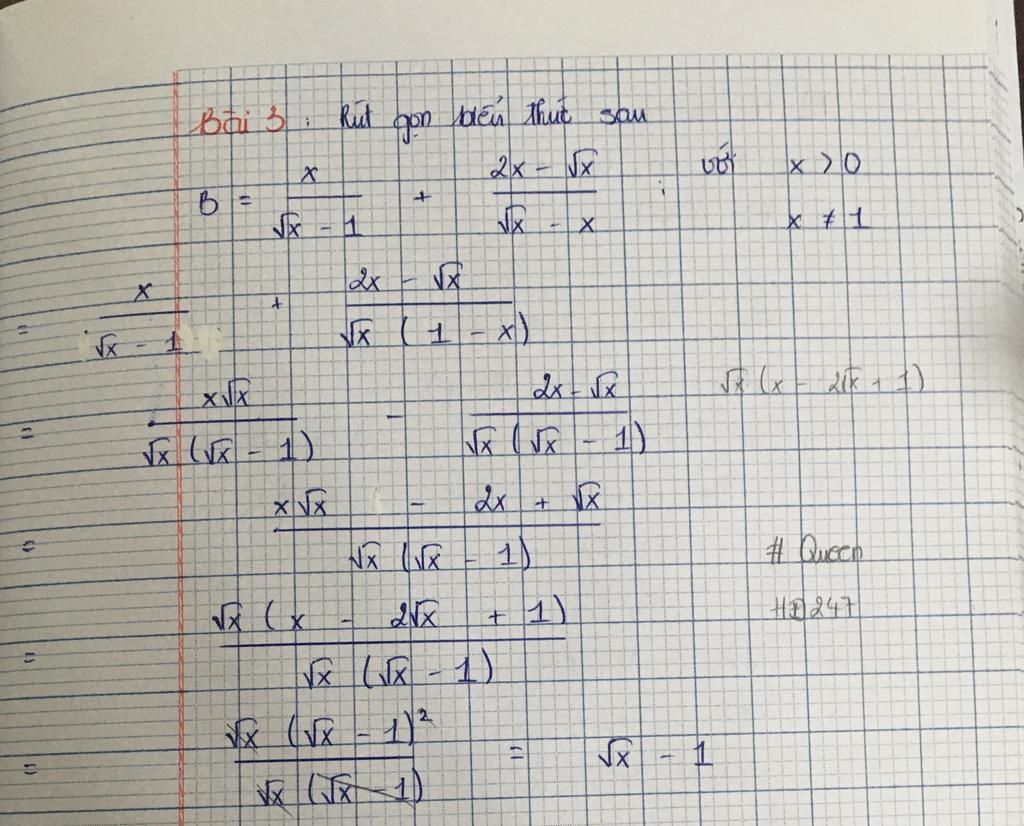 Bài 3: Rút gọn biểu thức sau
B = x / (√x - 1) + (2x - √x) / (√x - x) ; với x > 0
x ≠ 1
= x / (√x - 1) + (2x - √x) / (√x (1 - x))
= x√x / (√x (√x - 1)) - (2x - √x) / (√x (√x - 1)) √x (x - 2√x + 1)
= (x√x - 2x + √x) / (√x (√x - 1))
# Queen
= √x (x - 2√x + 1) / (√x (√x - 1))
= √x (√x - 1)² / (√x (√x - 1)) = √x - 1